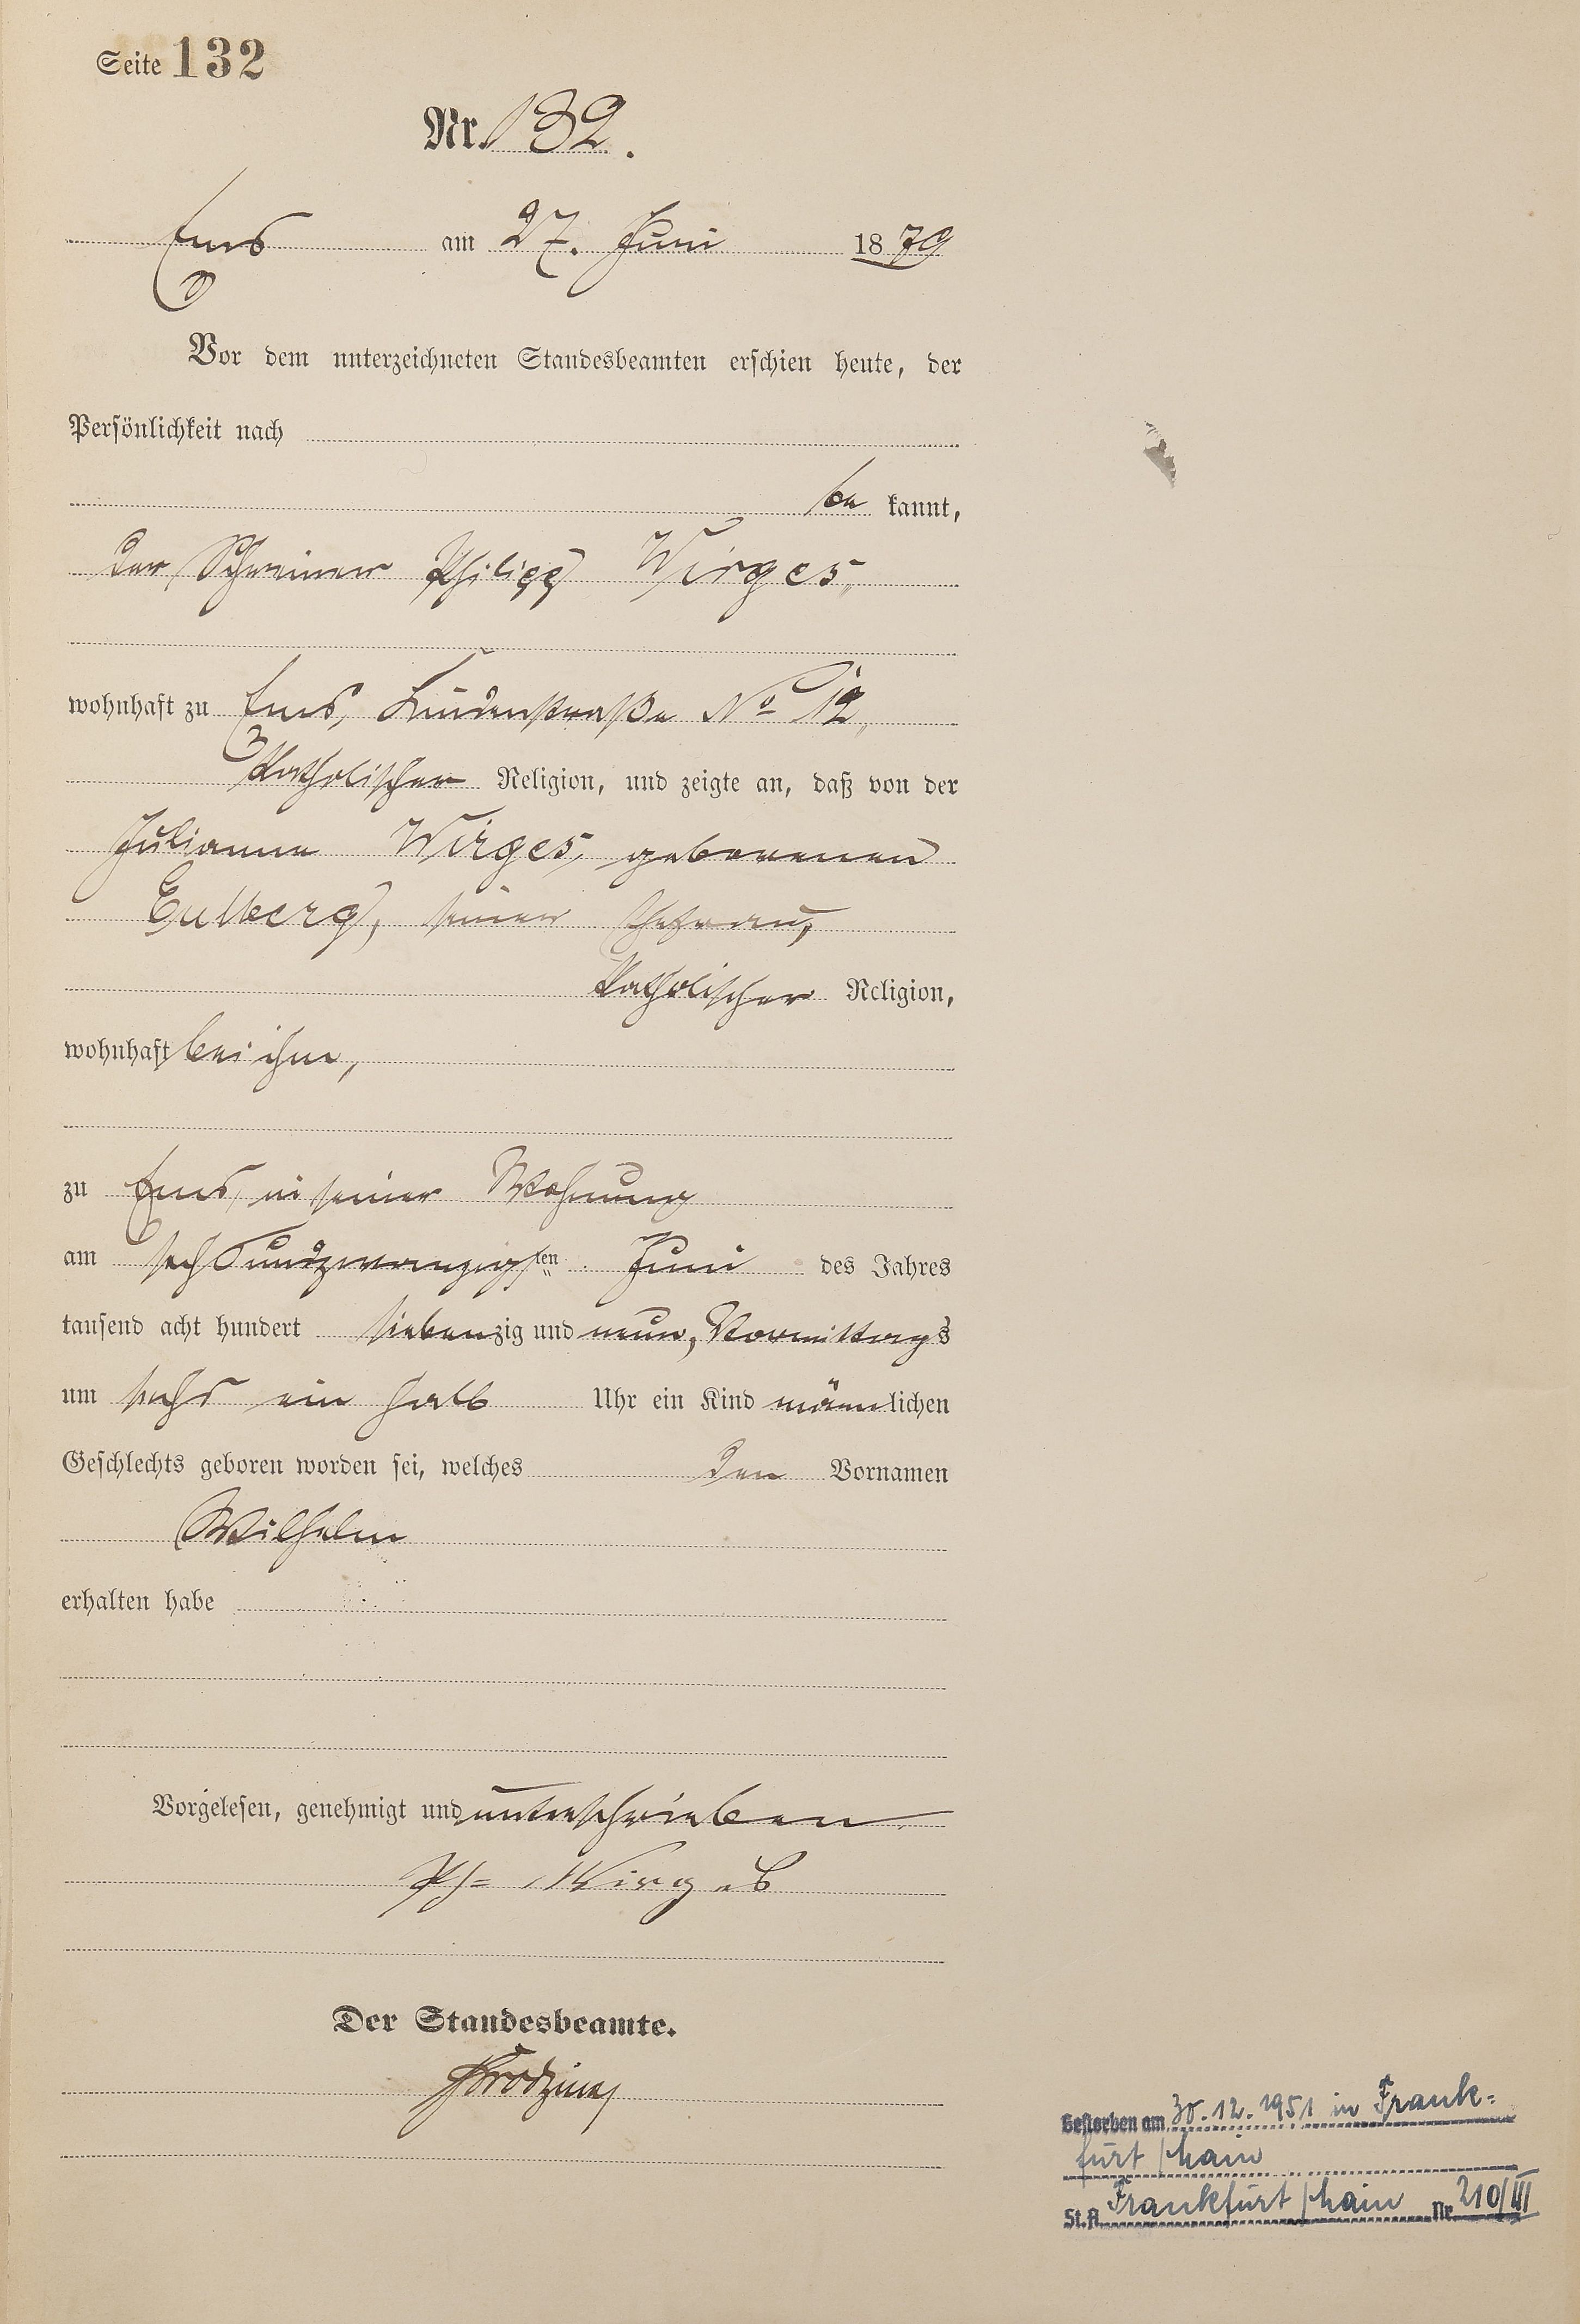 Seite 132
Nr. 132.
Ems am 27. Juni 1879
Vor dem unterzeichneten Standesbeamten erschien heute, der
Persönlichkeit nach
be kannt,
der Schreiner Philipp Wirges,
wohnhaft zu Ems, Lindenstraße No 12,
katholischer Religion, und zeigte an, daß von der
Julianne Wirges, geborenen
Eulberg, seiner Ehefrau,
katholischer Religion,
wohnhaft bei ihm,
zu Ems, in seiner Wohnung
am sechsundzwanzigsten Juni des Jahres
tausend acht hundert siebenzig und neun, Vormittags
um sechs ein halb Uhr ein Kind männlichen
Geschlechts geboren worden sei, welches den Vornamen
Wilhelm
erhalten habe
Vorgelesen, genehmigt und unterschrieben
Ph= Wirges
Der Standesbeamte.
Gestorben am 30.12.1951 in Frank=
furt / Main
St.A. Frankfurt / Main Nr. 210/III